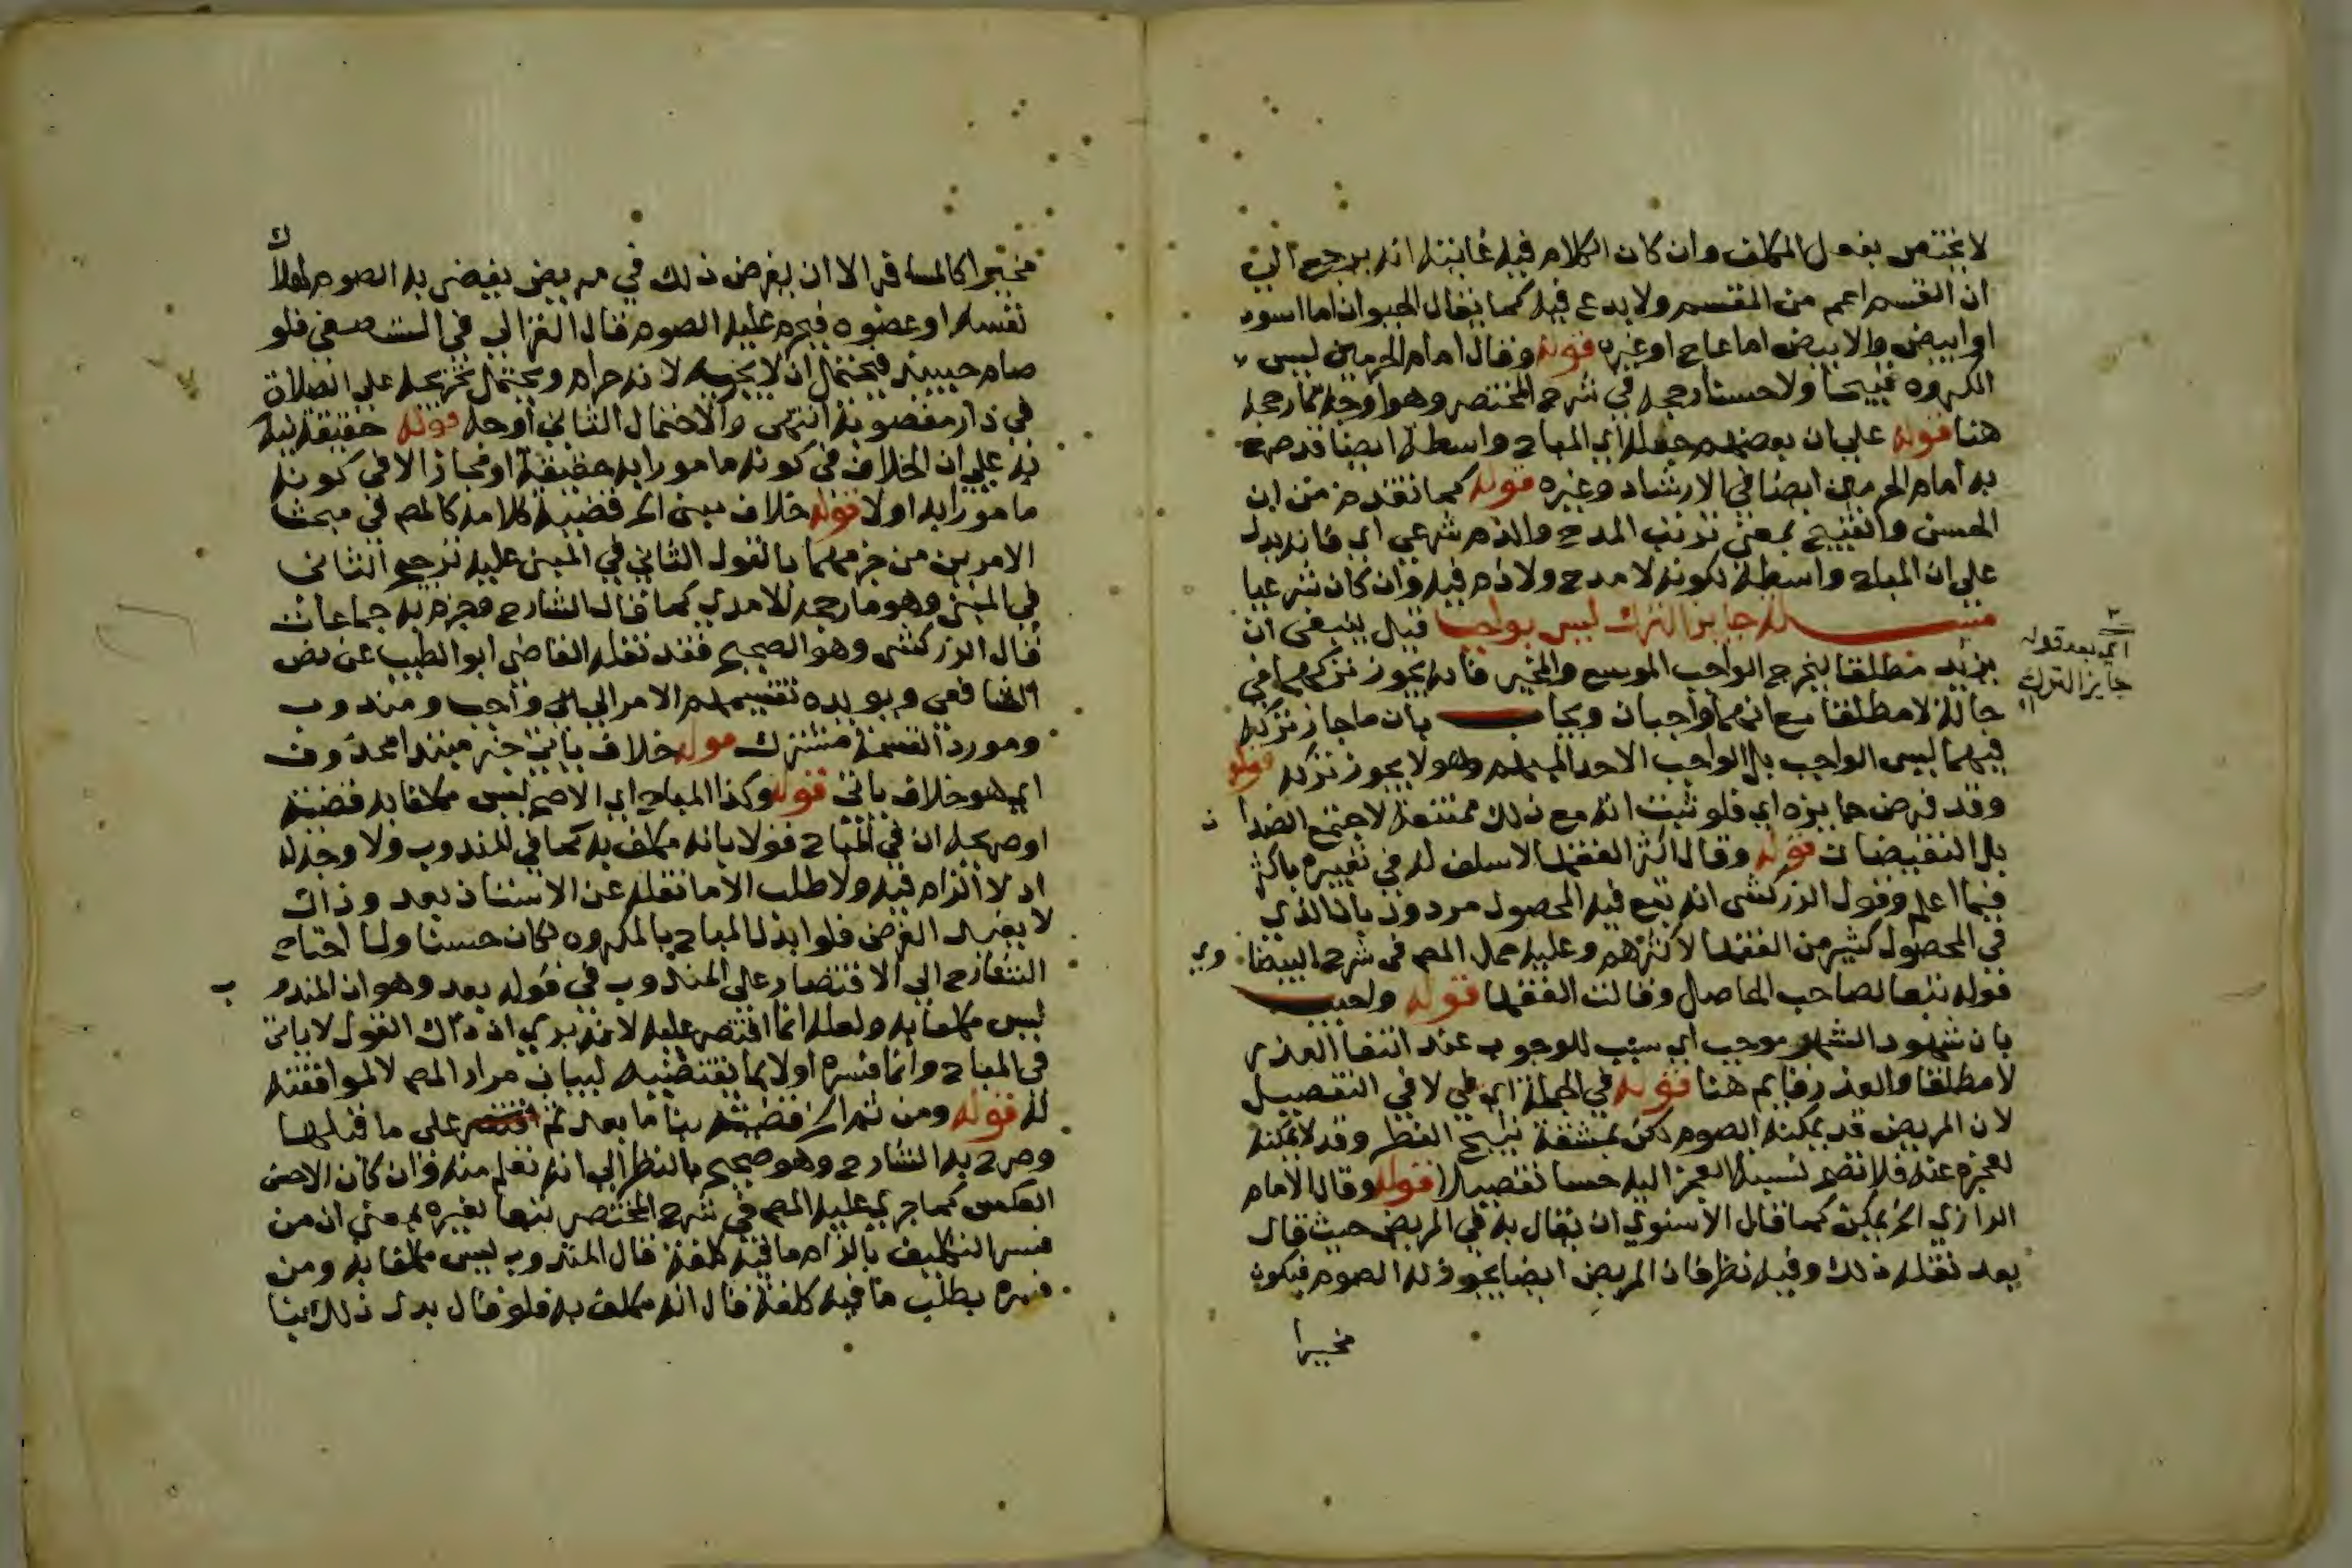 لا يختص بفعل المكلف وان كان الكلام فيه غايته انه يرجع الى
ان القسم اعم من المقسم ولا بدع فيه كما يقال الحيوان اما اسود
او ابيض والابيض اما عاج او غيره قوله وقال امام الحرمين ليس
المكروه قبيحا ولا حسنا رجحه في شرح المختصر وهو اوجه مما رجحه
هنا قوله على ان بعضهم جعله اي المباح واسطة ايضا قد صرح
به امام الحرمين ايضا في الارشاد وغيره قوله كما تقدم من ان
الحسن والقبيح بمعنى ترتب المدح والذم شرعي اي فانه يدل
على ان المباح واسطة لكونه لا مدح ولا ذم فيه وان كان شرعيا
مسـلة جايز الترك ليس بواجب قيل ينبغي ان
يزيد مطلقا ليخرج الواجب الموسع والمخير فانه يجوز تركهما في
حالة لا مطلقا مع انهما واجبان ويجاب بان ما جاز تركه
فيهما ليس الواجب بل الواجب الاحد المبهم وهو لا يجوز تركه قوله
وقد فرض جايزه اي فلو ثبت انه مع ذلك ممتنعة لاجتمع الضدا ن
بل النقيضان قوله وقال اكثر الفقها لا سلف له في تعبيره باكثر
فيما اعلم وقول الزركشي انه تبع فيه المحصول مردود بان الذي
في المحصول كثير من الفقها لا اكثرهم وعليه حمل المص في شرح البيضا وي
قوله تبعا لصاحب الحاصل وقالت الفقها قوله واجيب
بان شهود الشهر موجب اي سبب للوجوب عند انتفا العذر
لا مطلقا والعذر قايم هنا قوله في الجملة اي في لا في التفصيل
لان المريض قد يمكنه الصوم لكن بمشقة تبيح الفطر وقد لا يمكنه
لعجزه عنه فلا تصح نسبة العجز اليه حسا تفصيلا قوله وقال الامام
الرازي الخ يمكن كما قال الاسنوي ان يقال به في المريض حيث قال
بعد نقله ذلك وفيه نظر فان المريض ايضا يجوز له الصوم فيكون
مخيرا
اي بعد قوله
جايز الترك
مخيرا كالمسافر الا ان يفرض ذلك في مريض يفضي به الصوم لهلاك
نفسه او عضوه فيحرم عليه الصوم قال الغزالي في المستصفى فلو
صام حينئذ فيحتمل ان لا يجزيه لانه حرام ويحتمل تخريجه على الصلاة
في دار مغصوبة انتهى والاحتمال الثاني اوجه قوله حقيقة نبه
به على ان الخلاف في كونه مامورا به حقيقة او مجازا لا في كونه
مامورا به اولا قوله خلاف مبني الخ قضية كلامه كالمص في مبحث
الامر بين من جزمهما بالقول الثاني في المبني عليه ترجيح الثاني
في المبني وهو ما رجحه الامدي كما قال الشارح وجزم به جماعات
قال الزركشي وهو الصحيح فقد نقله القاضي ابو الطيب عن نص
الشافعي ويويده تقسيمهم الامر الى واجب ومندوب
ومورد القسمة مشترك قوله خلاف ياتي خبر مبتدا محذوف
اي هو خلاف ياتي قوله وكذا المباح اي الاصح ليس مكلفا به قضيته
او صريحه ان في المباح قولا بانه مكلف به كما في المندوب ولا وجه له
اذ لا الزام فيه ولا طلب الا ما نقله عن الاستاذ بعد وذاك
لا يفيد الغرض فلو ابدل المباح بالمكروه لكان حسنا ولما احتاج
الشارح الى الاقتصار على المندوب في قوله بعد وهو ان المندو ب
ليس مكلفا به ولعله انما اقتصر عليه لانه يري ان ذاك القول لا ياتي
في المباح وانما فسره اولا بما يقتضيه لبيان مراد المص لا لموافقته
له قوله ومن ثم الخ قضيته بنا ما بعد ثم على ما قبلها
وصرح به الشارح وهو صحيح بالنظر الى انه تعلم منه وان كان الاحسن
العكس كما جرى عليه المص في شرح المختصر تبعا لغيره بمعنى ان من
فسر التكليف بالزام ما فيه كلفة قال المندوب ليس مكلفا به ومن
فسره بطلب ما فيه كلفة قال انه مكلف به فلو قال بدل ذلك بنا